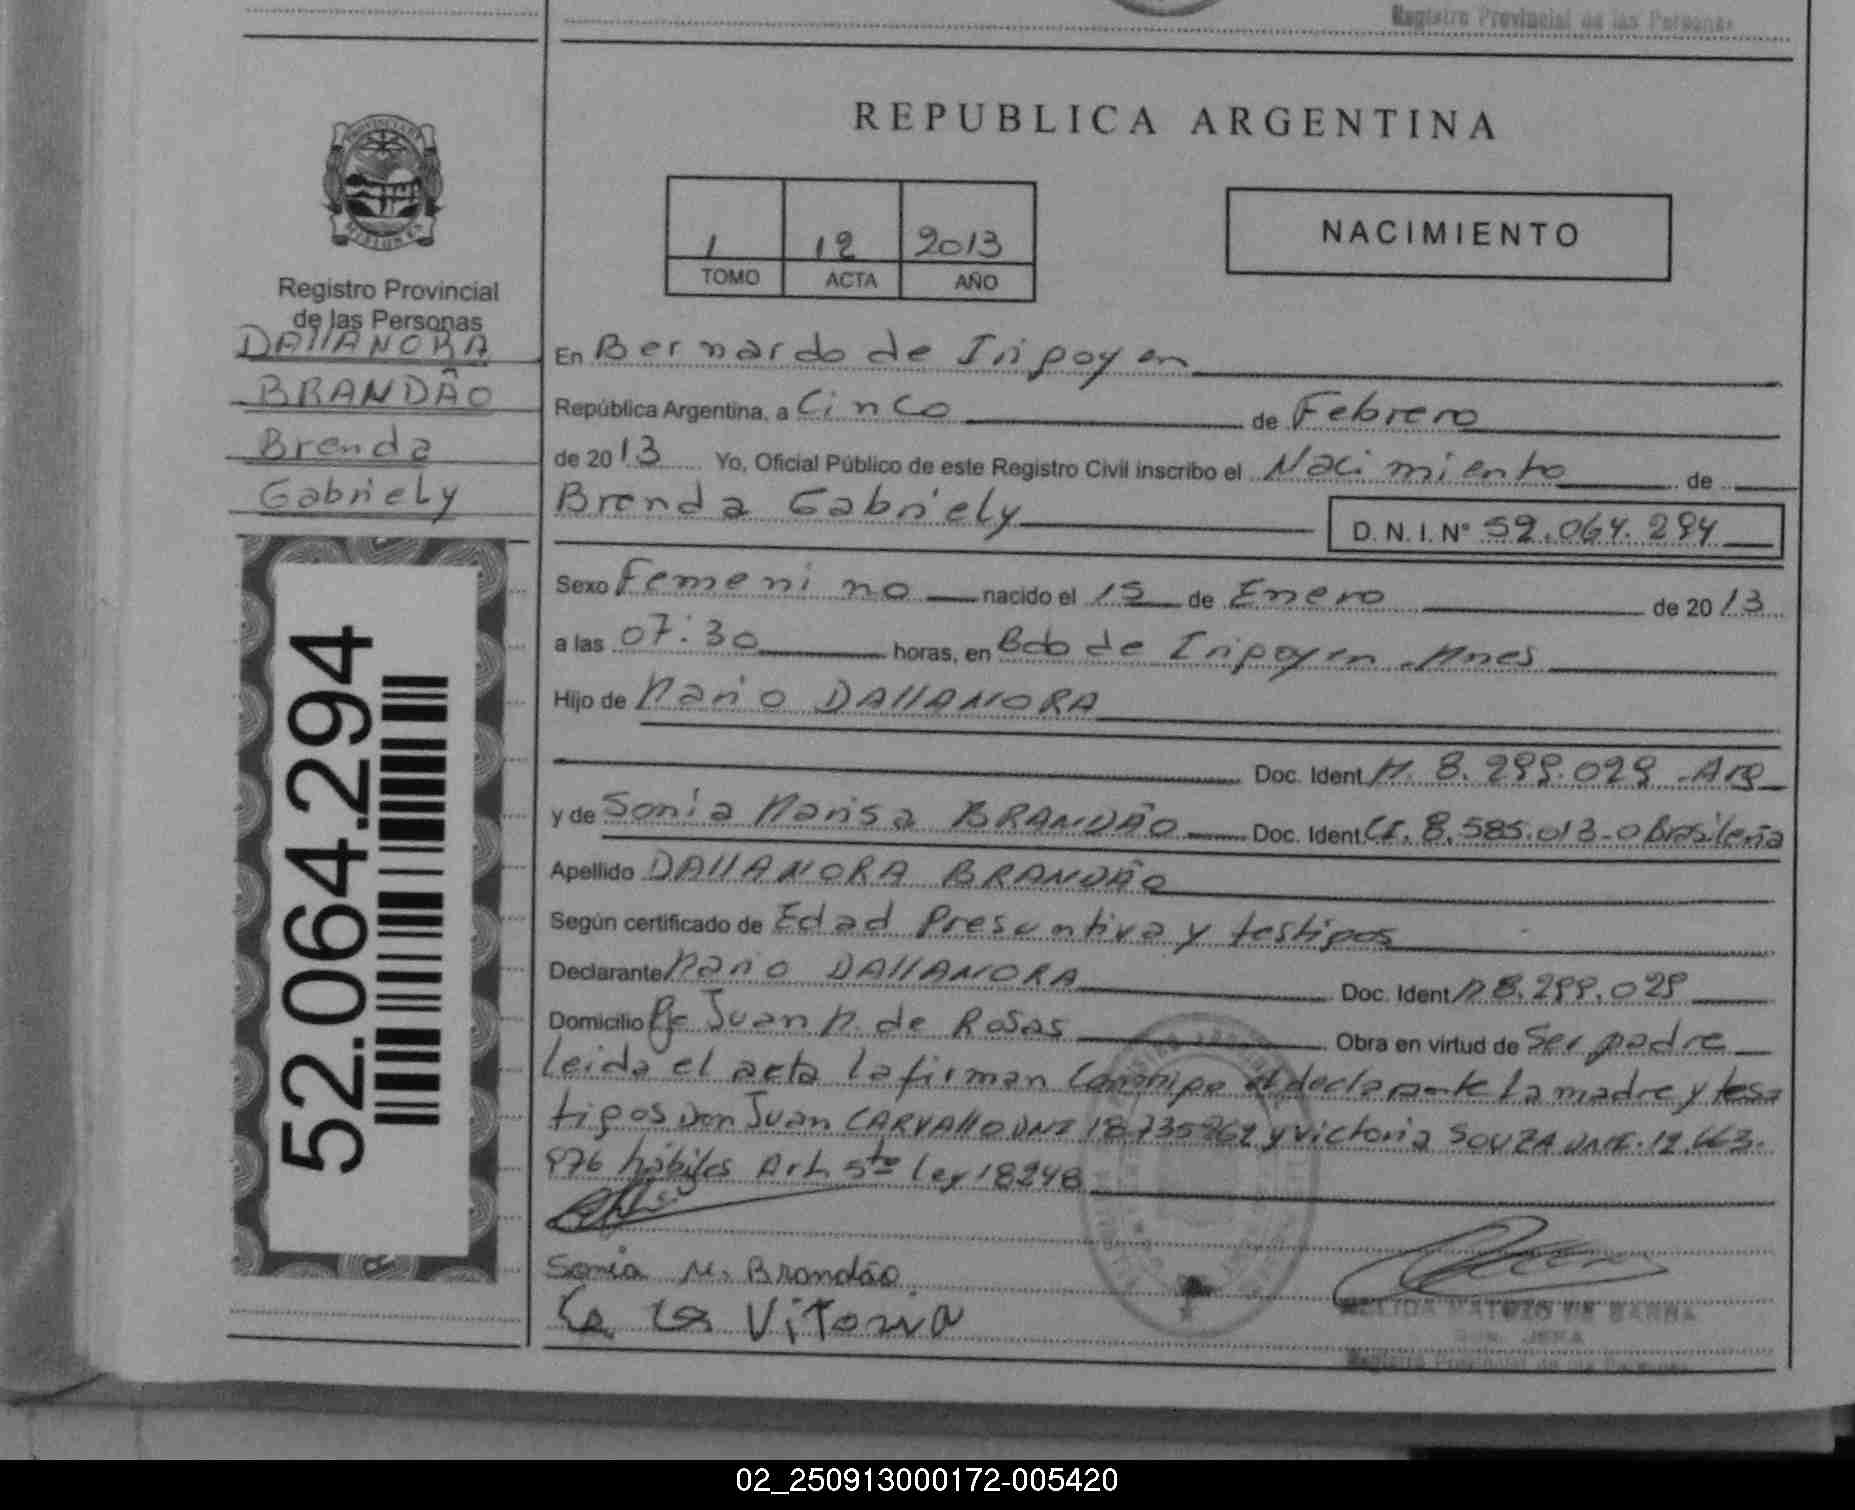 Registro Provincial de las Personas
REPUBLICA ARGENTINA
1 12 2013
TOMO ACTA AÑO
NACIMIENTO
PROVINCIA DE
MISIONES
Registro Provincial
de las Personas
DAllANORA
BRANDÃO
Brenda
Gabriely
52.064.294
En Bernardo de Irigoyen
República Argentina, a Cinco de Febrero
de 2013 Yo, Oficial Público de este Registro Civil inscribo el Nacimiento de
Brenda Gabriely D. N. I. Nº 52.064.294
Sexo Femenino nacido el 15 de Enero de 2013
a las 07:30 horas, en Bdo de Irigoyen Mnes
Hijo de Mario DAllANORA
Doc. Ident M. 8.299.029 Arg
y de Sonia Marisa BRANDÃO Doc. Ident CI. 8.585.013-0 Brasileña
Apellido DAllANORA BRANDÃO
Según certificado de Edad Presuntiva y testigos
Declarante Mario DAllANORA Doc. Ident M 8.299.029
Domicilio Pje Juan M. de Rosas Obra en virtud de Ser padre
leida el acta la firman Conmigo el declarante La madre y tes
tigos Don Juan CARVAllO DNI 18.735.962 y victoria SOUZA DNI. 12.663.
976 hábiles Art. 5to Ley 18248
Sonia M. Brandão
Vitoria
NELIDA MATOZO DE
Registro Provincial de las Personas
02_250913000172-005420